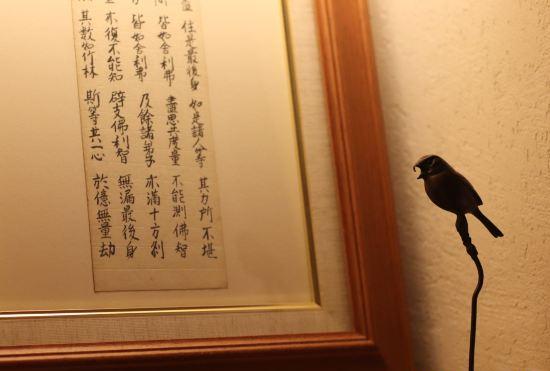 住是最後身 如是諸人等 其力所不堪
皆如舍利弗 盡思共度量 不能測佛智
皆如舍利弗 及餘諸弟子 亦滿十方刹
亦復不能知 辟支佛利智 無漏最後身
其數如竹林 斯等共一心 於億無量劫